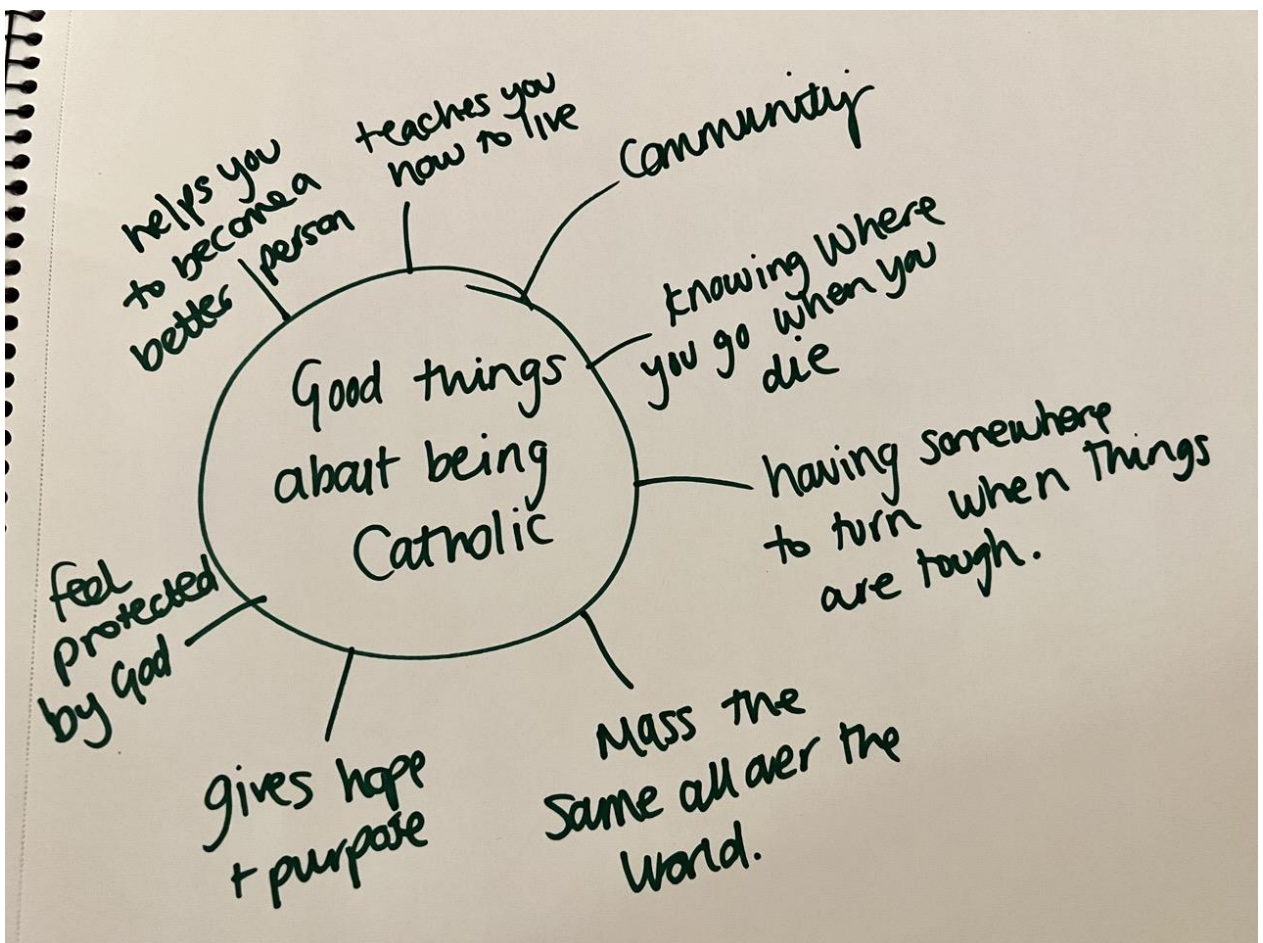 Good things
about being
Catholic
helps you
to become a
better person
teaches you
how to live
Community
knowing where
you go when you
die
having somewhere
to turn when things
are tough.
Mass the
same all over the
world.
gives hope
+ purpose
feel
protected
by God